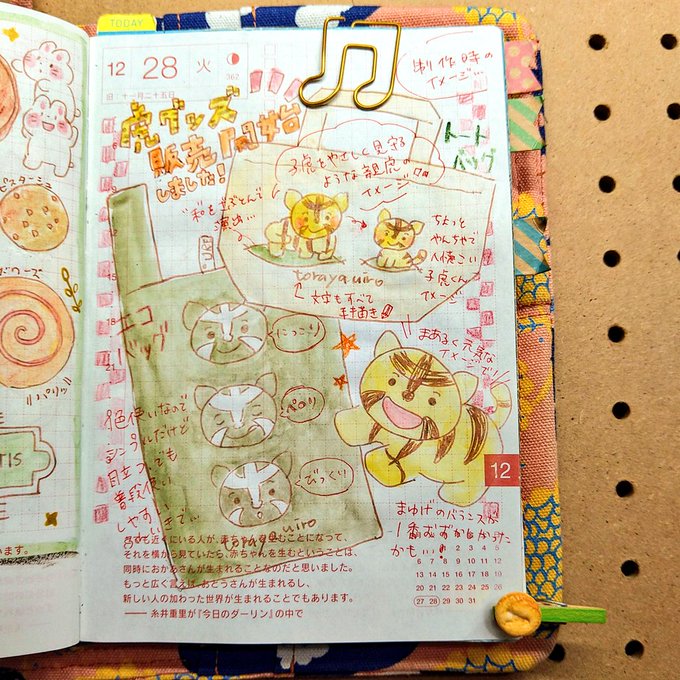 TODAY
12 28 火
362
旧 十一月二十五日
虎グッズ
販売開始
しました!
制作時の
イメージ…
トート
バッグ
子虎をやさしく見守る
ような親虎の
イメージ
ちょっと
やんちゃで
人懐こい
子虎くん
イメージ
torayauiro
文字もすべて
手描き!!
まあるく元気な
イメージで!
エコ
バッグ
にっこり
ペロリ
びっくり
色使いなので
シンプルだけど
目立つ、でも
普段使い
しやすい
torayauiro
まゆげのバランスが
1番むずかしかった
かも…
ピスタージュ
バリッ
TIS
います。
12
それを横から見ていたら、赤ちゃんを生むということは、
同時におかあさんが生まれることなのだと思いました。
もっと広く言えば、おとうさんが生まれるし、
新しい人の加わった世界が生まれることでもあります。
──糸井重里が『今日のダーリン』の中で
6 7 8 9 10 11 12
13 14 15 16 17 18 19
20 21 22 23 24 25 26
27 28 29 30 31